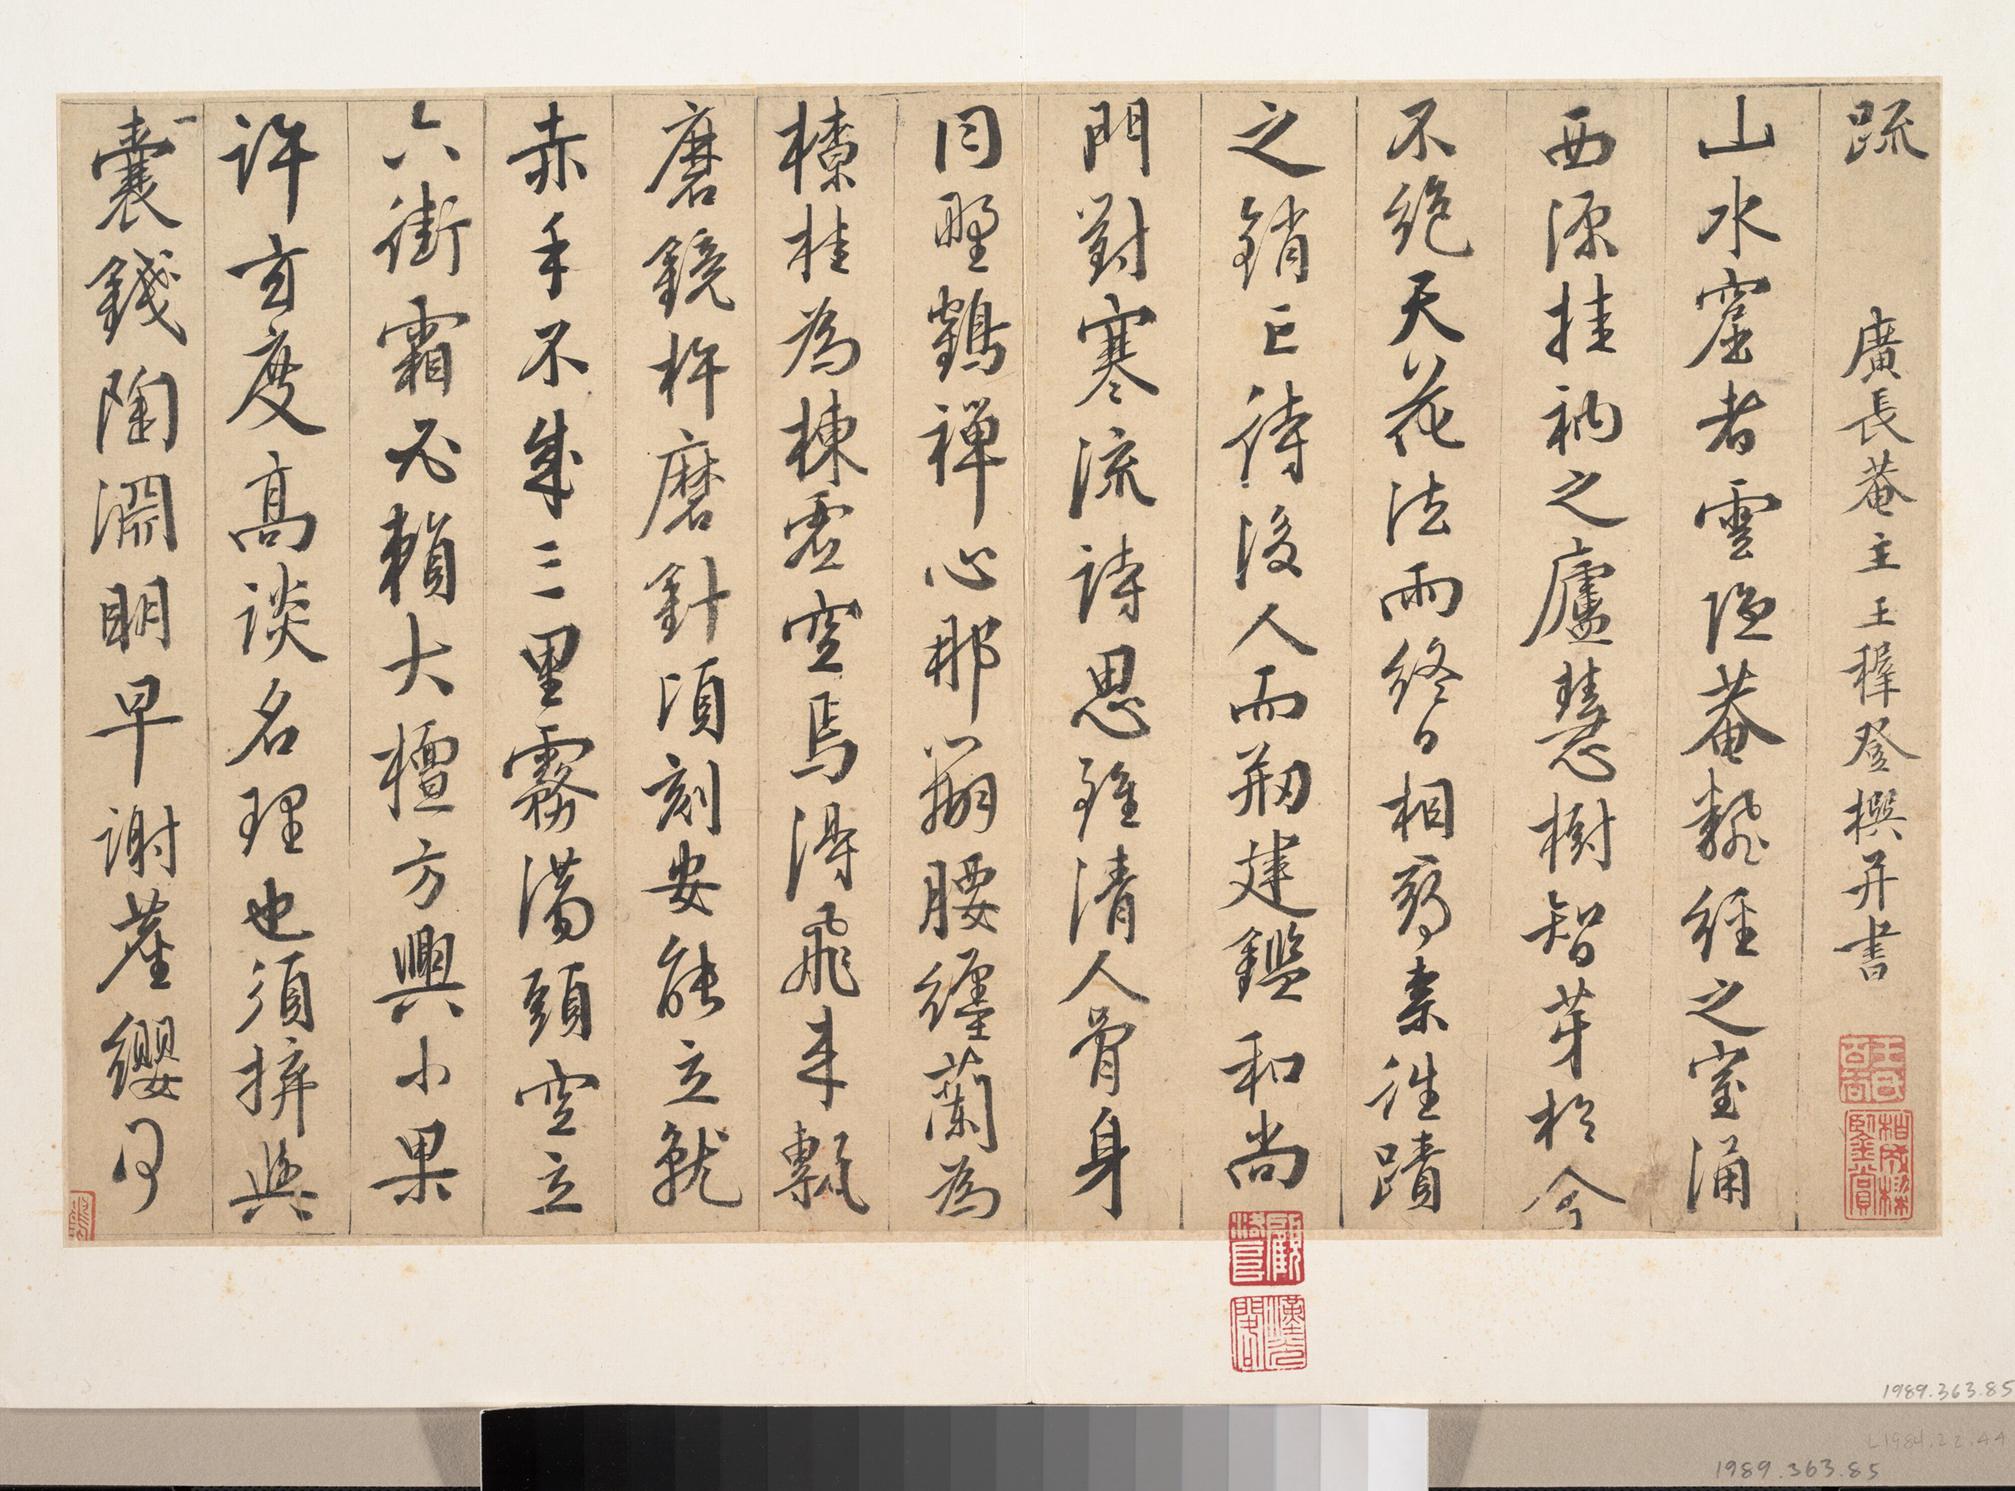 疏 廣長菴主王穉登撰并書
山水窟者雲隱菴翻經之室涌
西源挂衲之廬慧樹智芽於今
不絕天花法雨終日相仍奈往蹟
之銷亡待後人而剏建鑑和尚
門對寒流詩思雖清人骨身
同野鶴禪心那以獨腰纏蘭為
橑桂為棟虛空焉得飛來甎
磨鏡杵磨針頃刻安能立就
赤手不成三里霧蕩頭空立
六街霜必賴大檀方興小果
許玄度高談名理也須拚與
一囊錢陶淵明早謝塵纓何
1989.363.85
L1984.22.44
1989.363.85